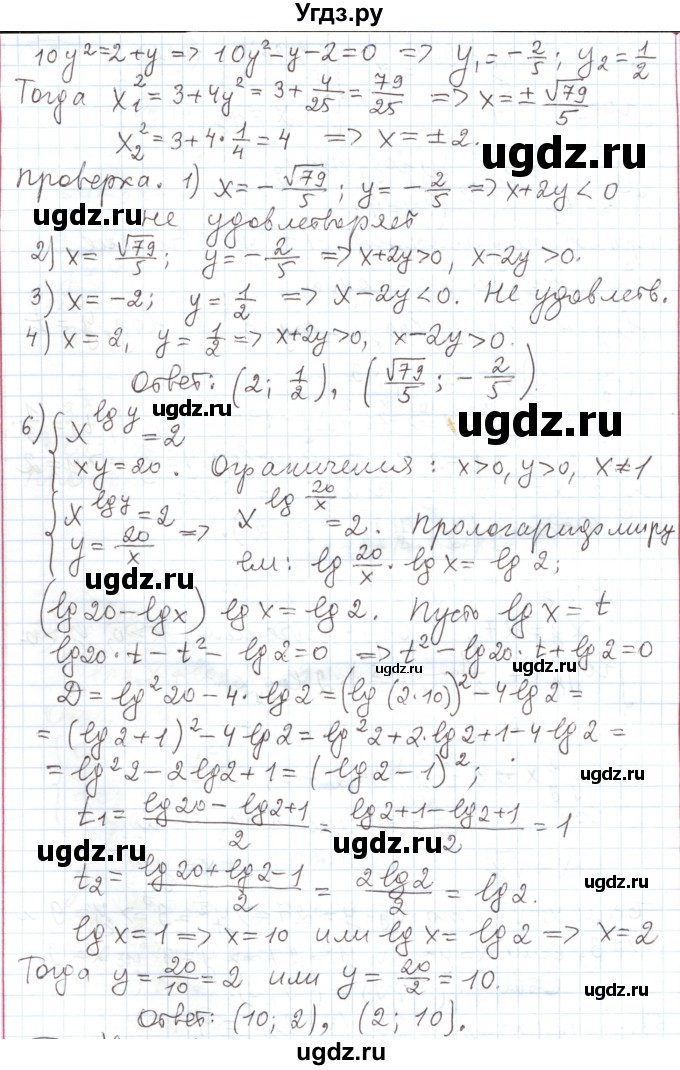 Угдз.ру
10y²=2+y => 10y²-y-2=0 => y₁=-2/5; y₂=1/2
Тогда x₁²=3+4y²=3+4/25=79/25 => x=±√79/5
x₂²=3+4·1/4=4 => x=±2.
ugdz.ru
Проверка. 1) x=-√79/5; y=-2/5 => x+2y<0
ugdz.ru
не удовлетворяет
2) x=√79/5; y=-2/5 => x+2y>0, x-2y>0.
3) x=-2; y=1/2 => x-2y<0. Не удовлетв.
4) x=2, y=1/2 => x+2y>0, x-2y>0.
Ответ: (2; 1/2), (√79/5; -2/5).
ugdz.ru ugdz.ru
6) { x^lg y=2
xy=20. Ограничения: x>0, y>0, x≠1
ugdz.ru
{ x^lg y=2
y=20/x => x^lg 20/x=2. Прологарифмиру
ем: lg 20/x · lg x=lg 2;
ugdz.ru
(lg20-lgx) lg x=lg 2. Пусть lg x=t
lg20·t-t²-lg 2=0 => t²-lg20·t+lg2=0
ugdz.ru ugdz.ru
D=lg²20-4·lg 2=(lg(2·10))²-4lg2=
=(lg2+1)²-4lg2=lg²2+2·lg2+1-4lg2=
=lg²2-2lg2+1=(lg2-1)²;
ugdz.ru
t₁=(lg20-lg2+1)/2=(lg2+1-lg2+1)/2=1
ugdz.ru ugdz.ru
t₂=(lg20+lg2-1)/2=2lg2/2=lg2.
ugdz.ru
lg x=1 => x=10 или lg x=lg 2 => x=2
Тогда y=20/10=2 или y=20/2=10.
ugdz.ru
Ответ: (10; 2), (2; 10).
ugdz.ru